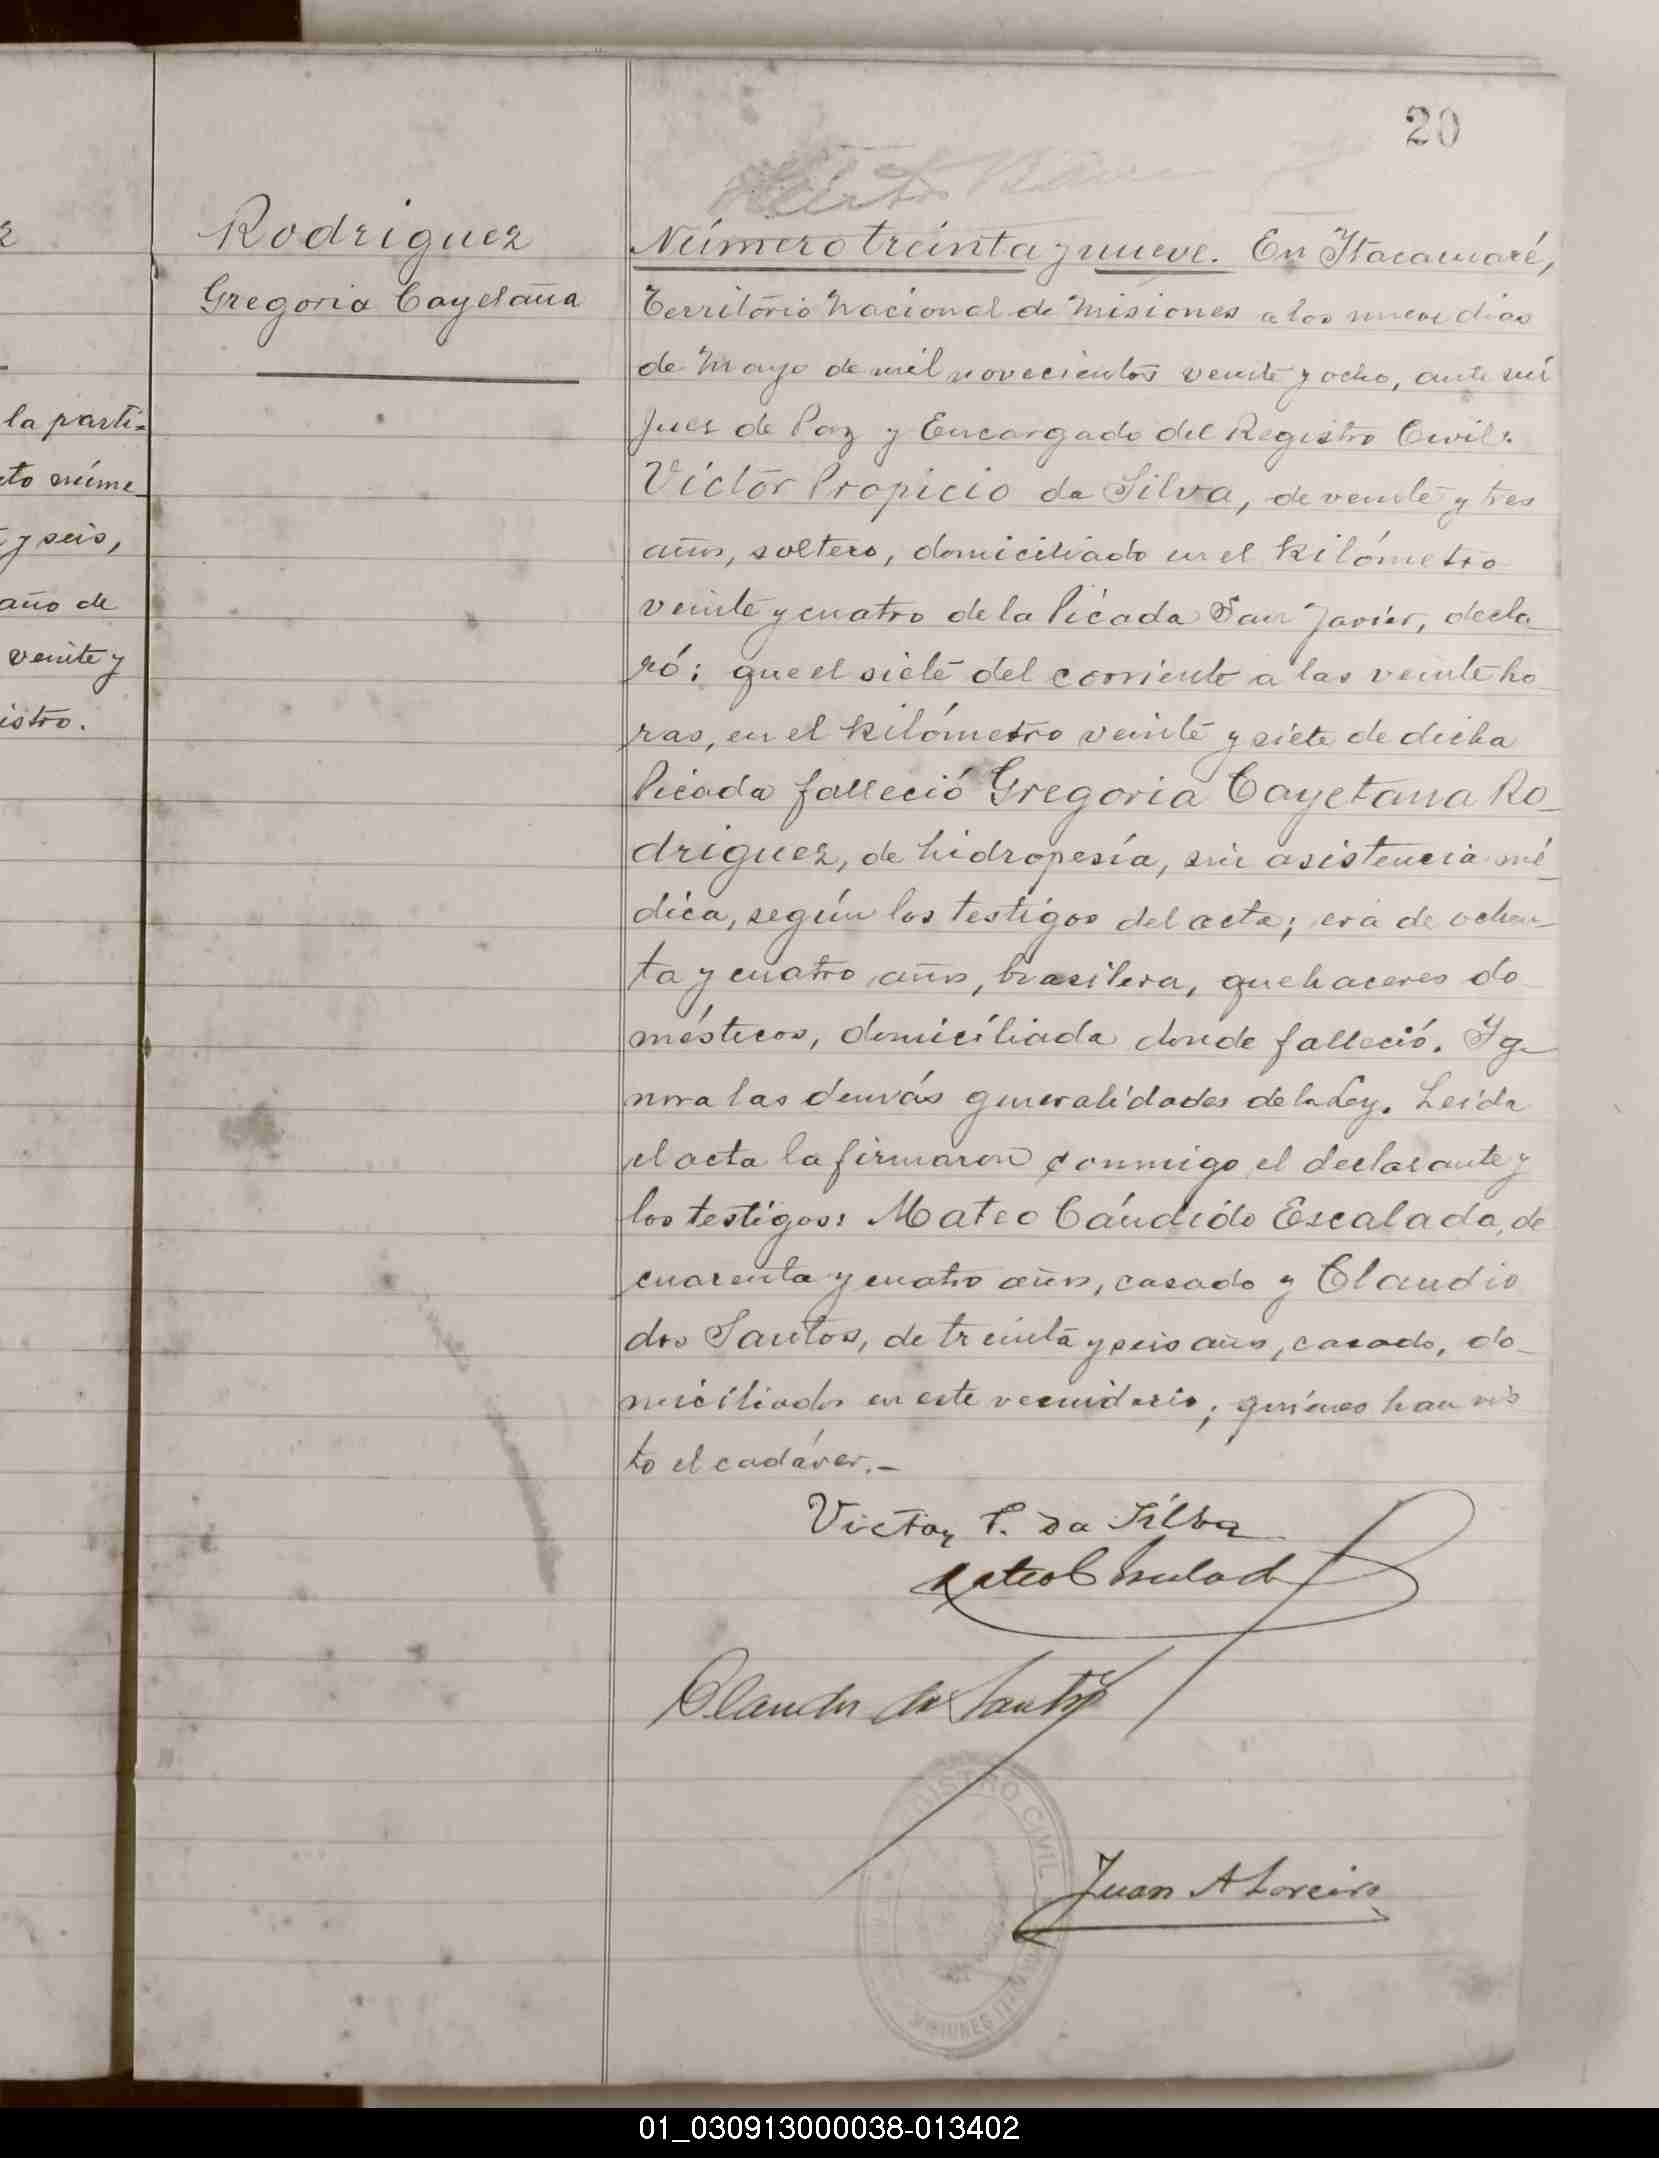 20
Rodriguez
Gregoria Cayetana
z
la parti=
to núme_
y seis,
año de
veinte y
istro.
Número treinta y nueve. En Itacaruaré,
Territorio Nacional de Misiones a los nueve dias
de Mayo de mil novecientos veinte y ocho, ante mí
Juez de Paz y Encargado del Registro Civil:
Víctor Propicio da Silva, de veinte y tres
años, soltero, domiciliado en el kilómetro
veinte y cuatro de la Picada San Javier, decla_
ró: que el siete del corriente a las veinte ho_
ras, en el kilómetro veinte y siete de dicha
Picada falleció Gregoria Cayetana Ro_
driguez, de hidropesía, sin asistencia mé_
dica, según los testigos del acta; era de ochen_
ta y cuatro años, brasilera, quehaceres do_
mésticos, domiciliada donde falleció. Ig_
nora las demás generalidades de la Ley. Leida
el acta la firmaron conmigo el declarante y
los testigos: Mateo Cándido Escalada, de
cuarenta y cuatro años, casado y Claudio
dos Santos, de treinta y seis años, casado, do_
miciliados en este vecindario; quiénes han vis
to el cadáver.-
Victor P. da Silva
Mateo C Escalada
Claudio dos Santos
REGISTRO CIVIL
MISIONES
Juan A Loreiro
01_030913000038-013402